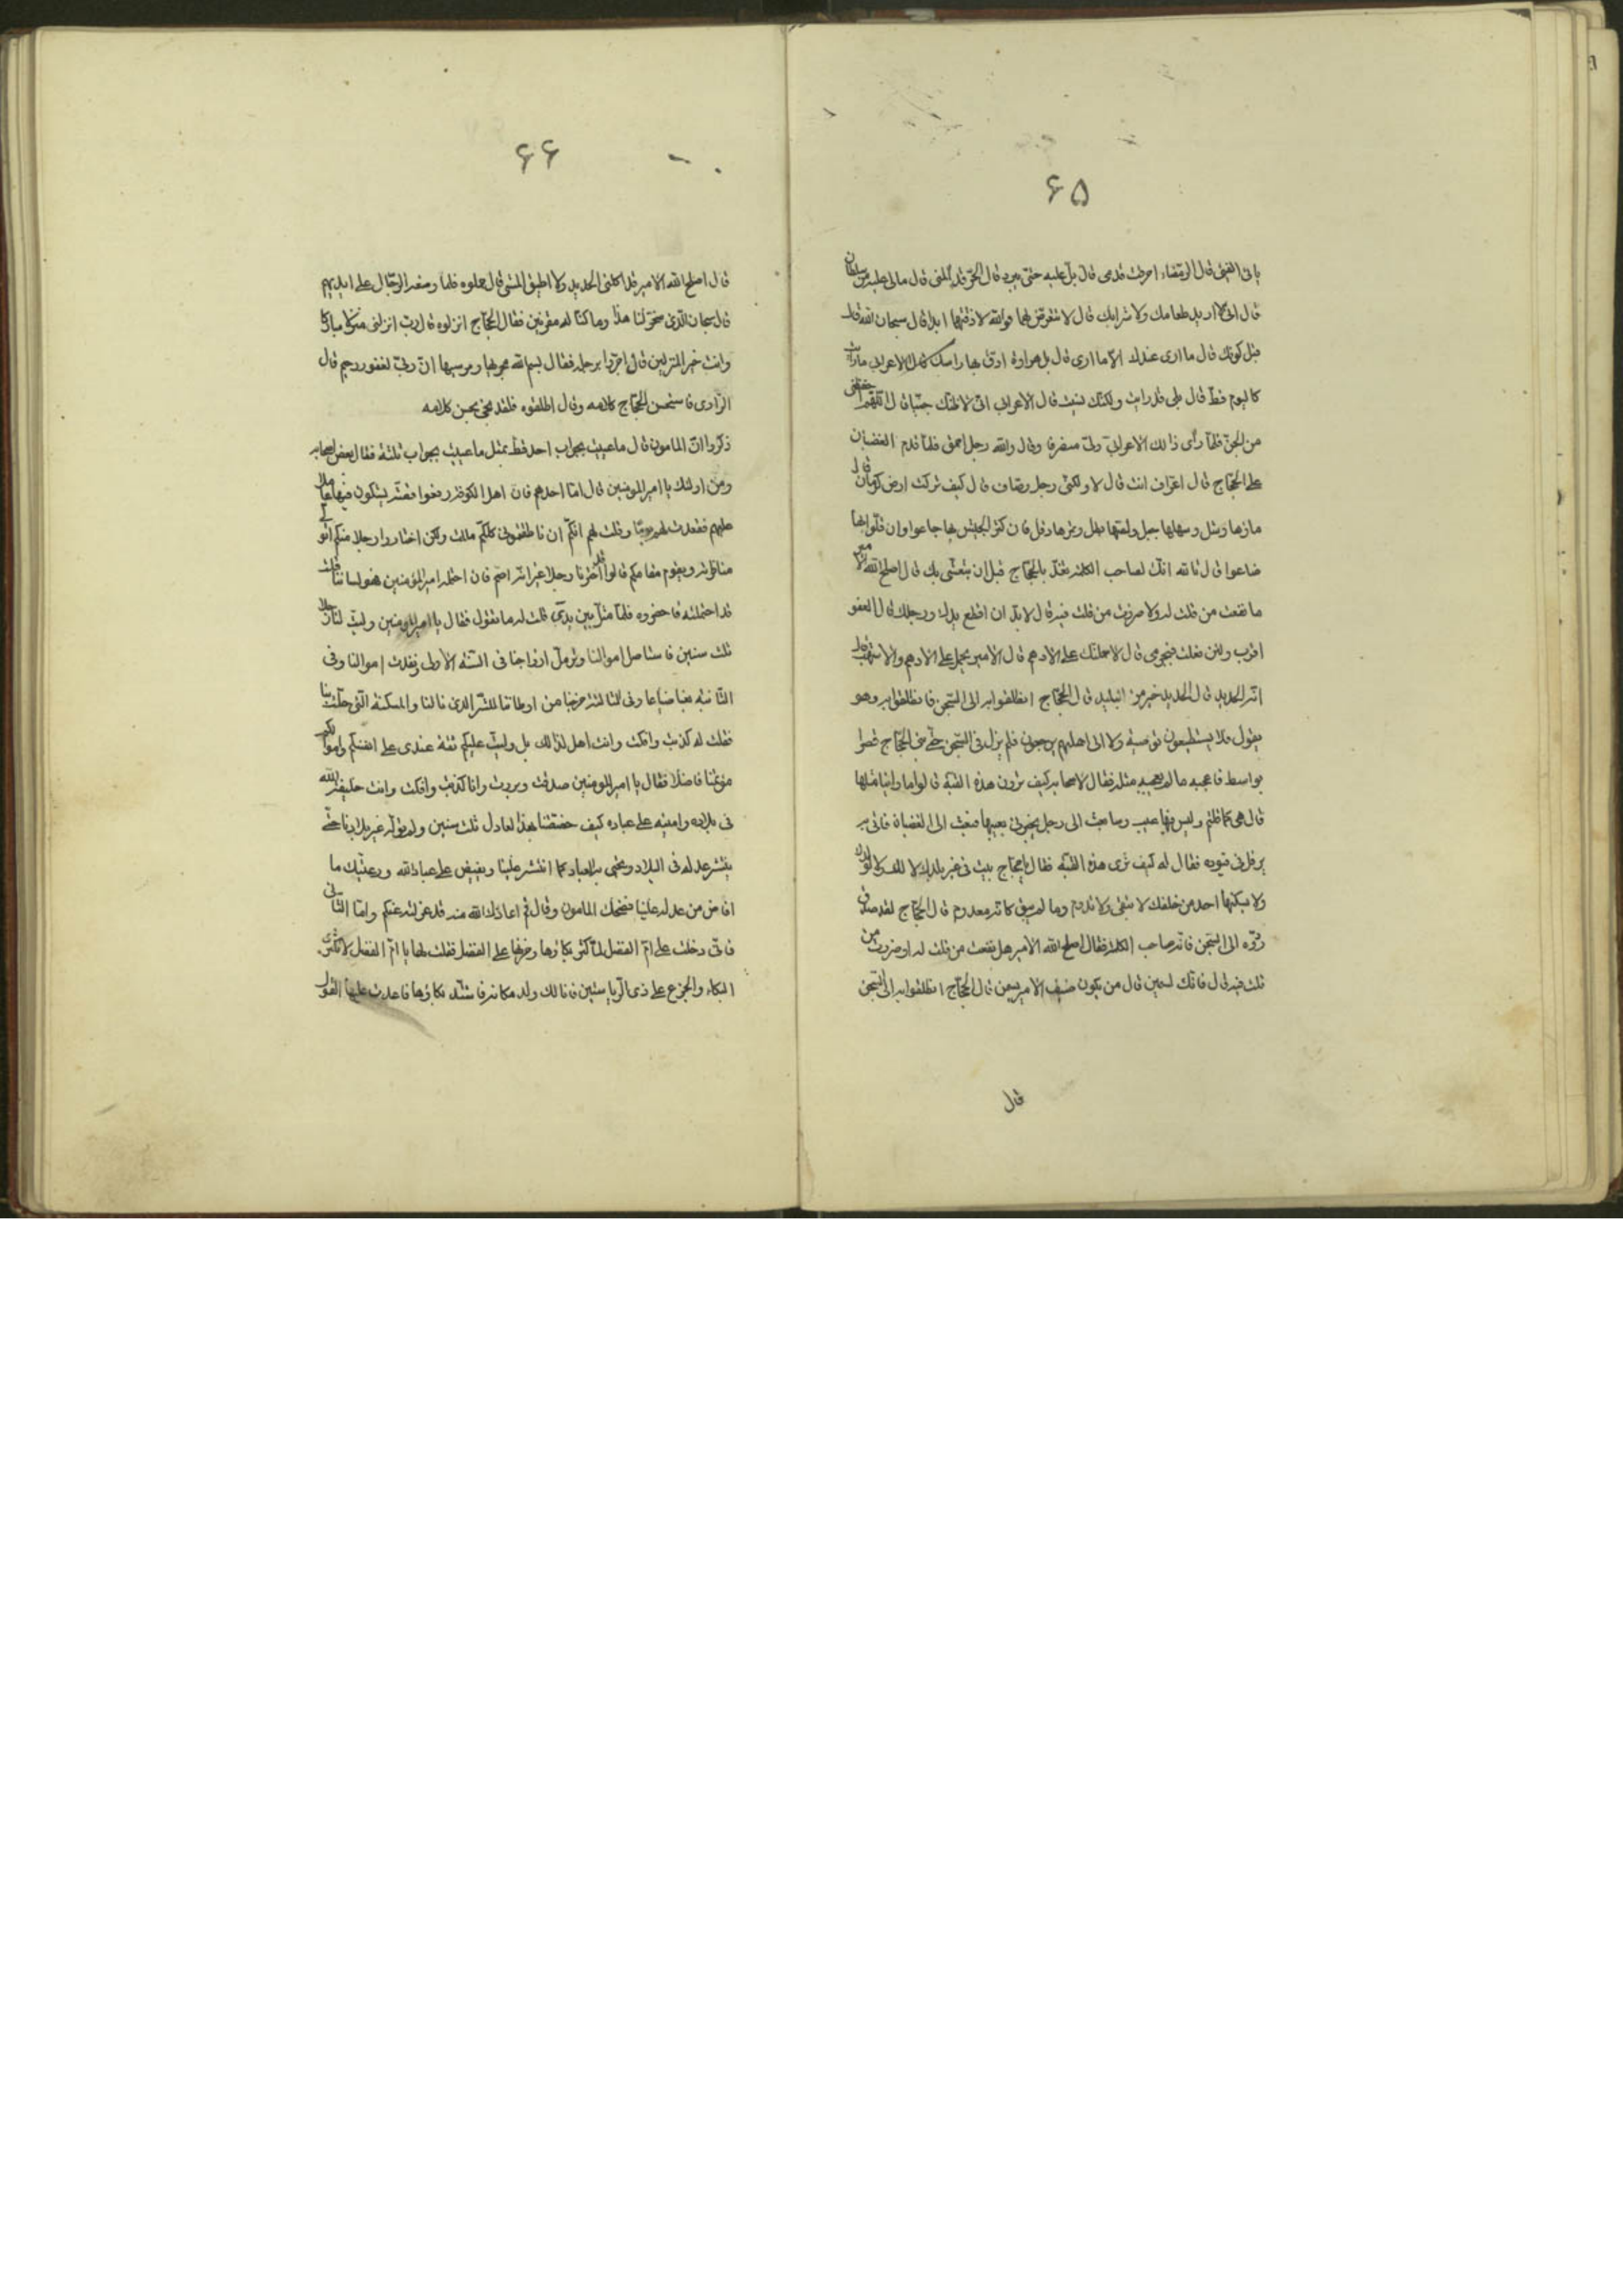 ۶۵
ياتى الفيئ قال الرمضاء احرقت قدمى قال بل عليه حتى يبرد قال الحر قد آلمنى قال مالى عليه من سلطان
قال انى لا اريد طعامك ولا شرابك قال لا تتعرض لهما فوالله لا ذقتهما ابدا قال سبحان الله قال
قبل كونك قال ما ارى عندك الا ما ارى قال بل هراوة ادق بها راسك قال الاعرابى مارايت
كاليوم قط قال بلى قد رايت ولكنك نسيت قال الاعرابى انى لاظنك جنيا قال اللهم اجعلنى
من الجن فلما رأى ذالك الاعرابى ولى منصرفا وقال والله رجل احمق فلما قدم الغضبان
على الحجاج قال اعراف انت قال لا ولكنى رجل وصاف قال كيف تركت ارض كرمان قال
ماؤها وشل وسهلها جبل ولصها بطل وتمرها دقل فان كثر الجيش بها جاعوا وان قلوا بها
ضاعوا قال تا لله انك لصاحب الكلمة تغد بالحجاج قبل ان يتعشى بك قال اصلح الله الامير
ما نفعت من قلت له ولا ضرت من قلت فيه قال لا بد ان اقطع يدك ورجلك قال العفو
اقرب ولئن فعلت فبجرمى قال لاحملنك على الادهم قال الامير يحمل على الادهم والاشهب قال
انه الحديد قال الحديد خير من البليد قال الحجاج انطلقوا به الى السجن فانطلقوا به وهو
يقول فلا يستطيعون توصية ولا الى اهلهم يرجعون فلم يزل فى السجن حتى بنى الحجاج قصرا
بواسط فاعجبه مالم يعجبه مثله فقال لاصحابه كيف ترون هذه القبة قالوا ما راينا مثلها
قال هى كما قلتم وليس فيها عيب وسابعث الى رجل يخبرنى بعيبها فبعث الى الغضبان فاتى به
يرفل فى قيوده فقال له كيف ترى هذه القبة فقال يا حجاج بنيت فى غير بلدك لا لك ولا لولدك
ولا يسكنها احد من خلفك لا تبقى ولا تدوم وما لم يبق كانه معدوم قال الحجاج لقد صدق
ردوه الى السجن فانه صاحب الكلمة فقال اصلح الله الامير هل نفعت من قلت له او ضررت من
قلت فيه قال فانك لسمين قال من يكون ضيف الامير يسمن قال الحجاج انطلقوا به الى السجن
قال
۶۶
قال اصلح الله الامير قد اكلنى الحديد ولا اطيق المشى قال احملوه فلما وضعه الرجال على ايديهم
قال سبحان الذى سخر لنا هذا وما كنا له مقرنين فقال الحجاج انزلوه قال رب انزلنى منزلا مباركا
وانت خير المنزلين قال جروا برجله فقال بسم الله مجريها ومرسيها ان ربى لغفور رحيم قال
الراوى فاستحسن الحجاج كلامه وقال اطلقوه فلقد نجى بحسن كلامه
ذكروا ان المامون قال ما عييت بجواب احد قط بمثل ما عييت بجواب ثلثة فقال بعض اصحابه
ومن اولئك يا امير المؤمنين قال اما احدهم فان اهل الكوفة رفعوا قصة يشكون فيها عاملا
عليهم فقعدت لهم يوما وقلت لهم انكم ان ناطقتمونى كلكم مللت ولكن اختاروا رجلا منكم اتولى
مناظرته ويقوم مقامكم قالوا قد اخترنا رجلا غير انه اصم فان احتمله امير المؤمنين فهو لساننا قلت
قد احتملته فاحضروه فلما مثل بين يدى قلت له ما تقول فقال يا امير المؤمنين وليت لنا رجلا
ثلث سنين فاستاصل اموالنا وترمل ازواجنا فى السنة الاولى ونفدت اموالنا وفى
الثانية بعنا ضياعنا وفى الثالثة خرجنا من اوطاننا للشر الذى نالنا والمسكنة التى حلت بنا
فقلت له كذبت وافكت وانت اهل لذالك بل وليت عليكم ثقة عندى على انفسكم واموالكم
مؤتمنا فاضلا فقال يا امير المومنين صدقت وبررت وانا كذبت وافكت وانت خليفة الله
فى بلاده وامينه على عباده كيف خصصتنا بهذا العادل ثلث سنين ولم توله غير بلادنا حتى
ينتشر عدله فى البلاد ويحيى به العباد كما انتشر علينا ويفيض على عباد الله ورعيتك ما
افاض من عدله علينا فضحك المامون وقال قم اعاذك الله منه قد عزلته عنكم واما الثانى
فانى دخلت على ام الفضل لما كثر بكاؤها وحزنها على الفضل فقلت لها يا ام الفضل لا تكثرى
البكاء والجزع على ذى الرياستين فانا لك ولد مكانه فاشتد بكاؤها فاعدت عليها القول